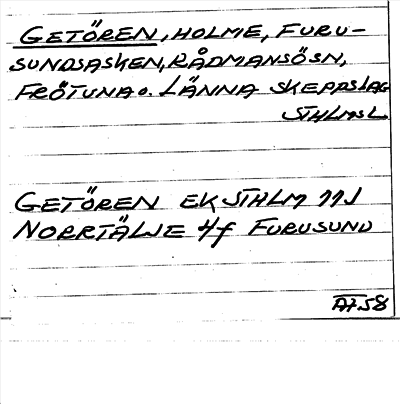 GETÖREN, HOLME, FURU-
SUNDSASKEN, RÅDMANSÖSN,
FRÖTUNA O. LÄNNA SKEPPSLAG
STHLMSL
GETÖREN EK STHLM 11J
NORRTÄLJE 4f FURUSUND
AJ.58